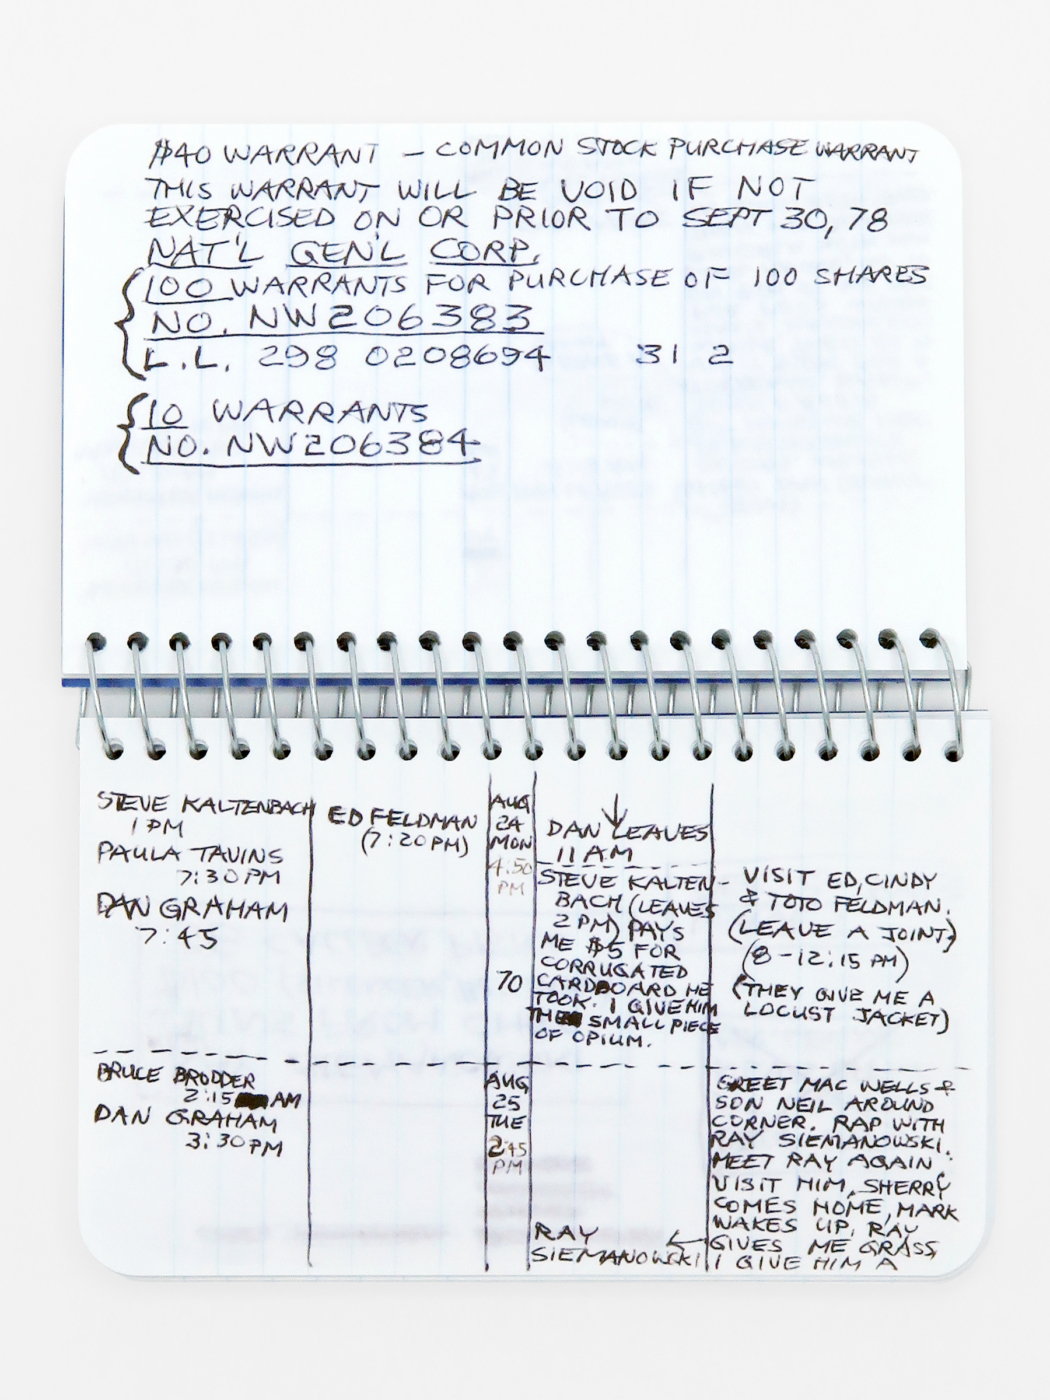 $40 WARRANT – COMMON STOCK PURCHASE WARRANT
THIS WARRANT WILL BE VOID IF NOT
EXERCISED ON OR PRIOR TO SEPT 30, 78
NAT'L GEN'L CORP.
100 WARRANTS FOR PURCHASE OF 100 SHARES
NO. NW206383
L.L. 298 0208694 31 2
10 WARRANTS
NO. NW206384
STEVE KALTENBACH
1 PM
PAULA TAVINS
7:30PM
DAN GRAHAM
7:45
ED FELDMAN
(7:20PM)
AUG
24
MON
4:50
PM
70
DAN LEAVES
11 AM
STEVE KALTEN-
BACH (LEAVES
2 PM) PAYS
ME $5 FOR
CORRUGATED
CARDBOARD HE
TOOK. I GIVE HIM
SMALL PIECE
OF OPIUM.
VISIT ED, CINDY
& TOTO FELDMAN.
(LEAVE A JOINT)
(8–12:15 PM)
(THEY GIVE ME A
LOCUST JACKET)
BRUCE BRODDER
2:15 AM
DAN GRAHAM
3:30PM
AUG
25
TUE
2:45
PM
RAY
SIEMANOWSKI
GREET MAC WELLS &
SON NEIL AROUND
CORNER. RAP WITH
RAY SIEMANOWSKI.
MEET RAY AGAIN
VISIT HIM, SHERRY
COMES HOME, MARK
WAKES UP, RAY
GIVES ME GRASS,
I GIVE HIM A